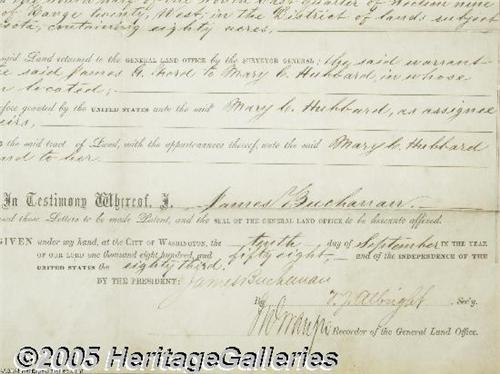 the North half of the North East quarter of Section nine
of Range twenty, West, in the District of lands subject
sota, containing eighty acres,
said Land returned to the GENERAL LAND OFFICE by the SURVEYOR GENERAL; the said warrant
the said James G. Ford to Mary C. Hubbard, in whose
n located;
efore granted by the UNITED STATES unto the said Mary C. Hubbard, as assignee
eirs,
the said tract of Land, with the appurtenances thereof, unto the said Mary C. Hubbard
and to her
In Testimony Whereof, I, James Buchanan
caused these Letters to be made Patent, and the SEAL OF THE GENERAL LAND OFFICE to be hereunto affixed.
GIVEN under my hand, at the CITY OF WASHINGTON, the tenth day of September IN THE YEAR
OF OUR LORD one thousand eight hundred, and fifty eight and of the INDEPENDENCE OF THE
UNITED STATES the eighty third.
BY THE PRESIDENT: James Buchanan
By T. J. Albright Sec'y.
Recorder of the General Land Office.
©2005 HeritageGalleries